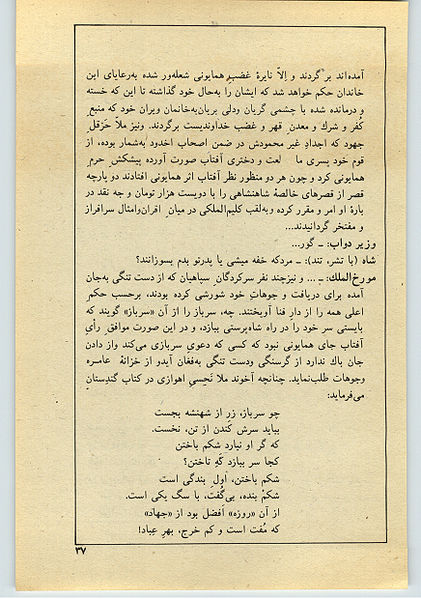 آمده‌اند برگردند و اِلاّ نایرهٔ غضب همایونی شعله‌ور شده به‌رعایای این
خاندان حکم خواهد شد که ایشان را به‌حال خود گذاشته تا این که خسته
و درمانده شده با چشمی گریان ودلی بریان به‌خانمان ویران خود که منبعِ
کُفر و شرك و معدنِ قهر و غضب خداوندیست برگردند. ونیز ملاّ حَزقل
جهود که اجدادِ غیر محمودش در ضمن اصحاب اخدود به‌شمار بوده، از
قوم خود پسری ما لعت و دختری آفتاب صورت آورده پیشکش حرمِ
همایونی کرد و چون هر دو منظور نظر آفتاب اثر همایونی افتادند دو پارچه
قصر از قصرهای خالصهٔ شاهنشاهی را با دویست هزار تومان و چه نقد در
بارهٔ او امر و مقرر کرده وبه‌لقب کلیم‌الملکی در میان اقران‌وامثال سرافراز
و مفتخر گردانیدند...
وزیر دواب: ـ گور...
شاه (با تشر، تند): ـ مردکه خفه میشی یا پدرتو بدم بسوزانند؟
مورخ‌الملك: ـ ... و نیزچند نفر سرکردگانِ سپاهیان که از دست تنگی به‌جان
آمده برای دریافت و جوهاتِ خود شورشی کرده بودند، برحسب حکمِ
اعلی همه را از دارِ فنا آویختند. چه، سرباز را از آن «سرباز» گویند که
بایستی سر خود را در راه شاه‌پرستی ببازد، و در این صورت موافق رأیِ
آفتاب جای همایونی نبود که کسی که دعوی سربازی می‌کند واز دادن
جان باك ندارد از گرسنگی ودست تنگی به‌فغان آیدو از خزانهٔ عامره
وجوهات طلب‌نماید. چنانچه آخوند ملا نَحِسیِ اهوازی در کتاب گندِستان
می‌فرماید:
چو سرباز، زر از شهنشه بجست
بباید سرش کَندن از تن، نخست.
که گر او نیارد شکم باختن
کجا سر ببازد گَهِ تاختن؟
شکم باختن، اول بندگی است
شکمْ بنده، بی‌گُفت، با سگ یکی است.
از آن «روزه» افضل بود از «جهاد»
که مُفت است و کم خرج، بهرِ عِباد!
۳۷